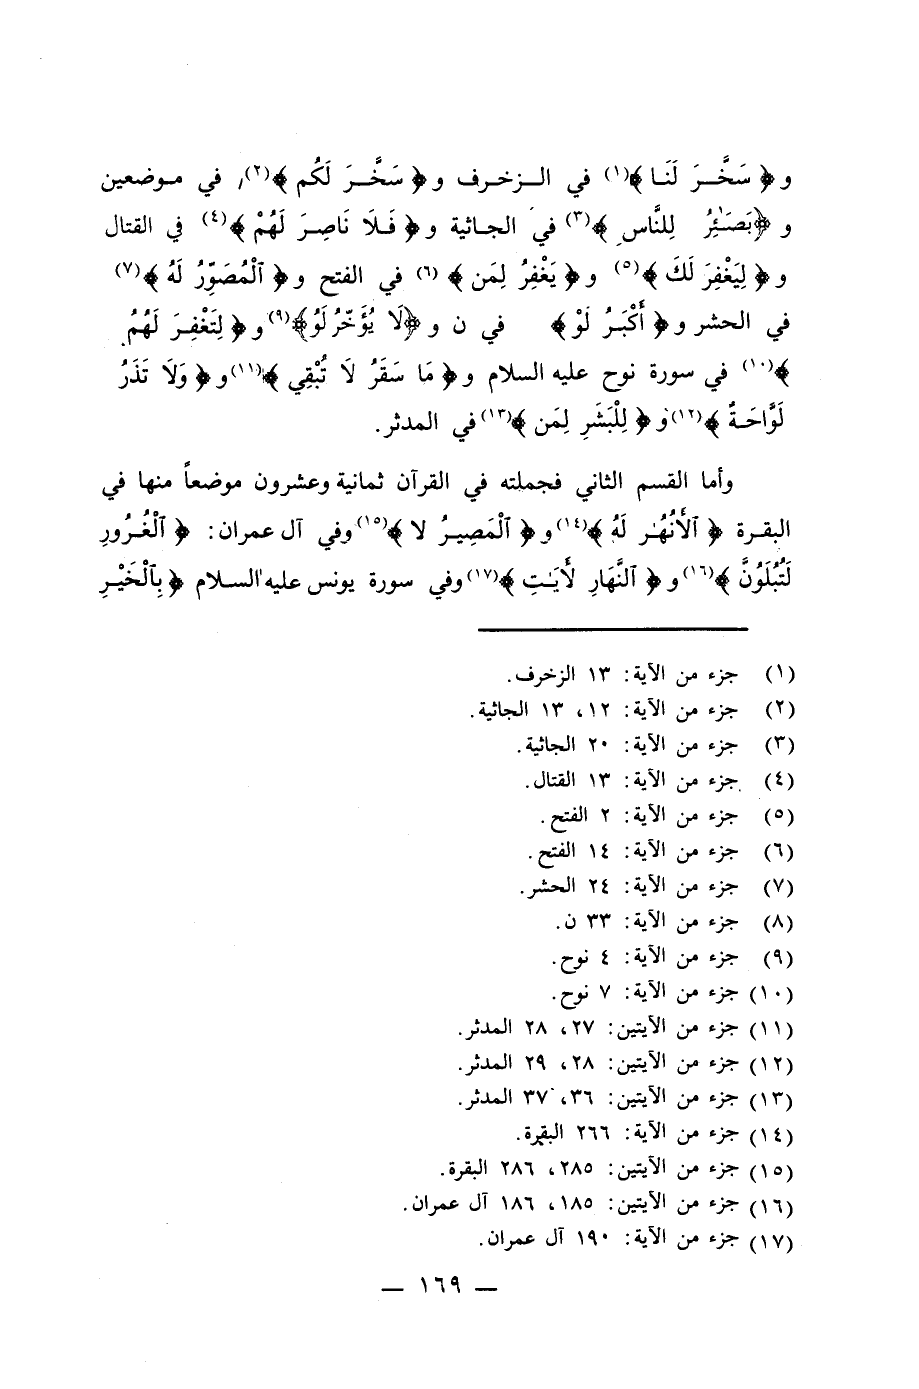 و ﴿ سَخَّرَ لَنَا ﴾(١) في الزخرف و ﴿ سَخَّرَ لَكُم ﴾(٢) في موضعين
و ﴿بَصَـٰٓئِرُ لِلنَّاسِ ﴾(٣) في الجاثية و ﴿ فَلَا نَاصِرَ لَهُمْ ﴾(٤) في القتال
و ﴿ لِيَغْفِرَ لَكَ ﴾(٥) و ﴿ يَغْفِرُ لِمَن ﴾ (٦) في الفتح و ﴿ ٱلْمُصَوِّرُ لَهُ ﴾(٧)
في الحشر و ﴿ أَكْبَرُ لَوْ ﴾ في ن و ﴿لَا يُؤَخَّرُ لَوْ﴾(٩) و ﴿ لِتَغْفِرَ لَهُمْ
﴾(١٠) في سورة نوح عليه السلام و ﴿ مَا سَقَرُ لَا تُبْقِي ﴾(١١) و ﴿ وَلَا تَذَرُ
لَوَّاحَةٌ ﴾(١٢) و ﴿ لِلْبَشَرِ لِمَن ﴾(١٣) في المدثر.
وأما القسم الثاني فجملته في القرآن ثمانية وعشرون موضعاً منها في
البقرة ﴿ ٱلْأَنْهَـٰرُ لَهُ ﴾(١٤) و ﴿ ٱلْمَصِيرُ لا ﴾(١٥) وفي آل عمران: ﴿ ٱلْغُرُورِ
لَتُبْلَوُنَّ ﴾(١٦) و ﴿ ٱلنَّهَارِ لَأَيَـٰتٍ ﴾(١٧) وفي سورة يونس عليه السلام ﴿ بِٱلْخَيْرِ
(١) جزء من الآية: ١٣ الزخرف.
(٢) جزء من الآية: ١٢، ١٣ الجاثية.
(٣) جزء من الآية: ٢٠ الجاثية.
(٤) جزء من الآية: ١٣ القتال.
(٥) جزء من الآية: ٢ الفتح.
(٦) جزء من الآية: ١٤ الفتح.
(٧) جزء من الآية: ٢٤ الحشر.
(٨) جزء من الآية: ٣٣ ن.
(٩) جزء من الآية: ٤ نوح.
(١٠) جزء من الآية: ٧ نوح.
(١١) جزء من الآيتين: ٢٧، ٢٨ المدثر.
(١٢) جزء من الآيتين: ٢٨، ٢٩ المدثر.
(١٣) جزء من الآيتين: ٣٦، ٣٧ المدثر.
(١٤) جزء من الآية: ٢٦٦ البقرة.
(١٥) جزء من الآيتين: ٢٨٥، ٢٨٦ البقرة.
(١٦) جزء من الآيتين: ١٨٥، ١٨٦ آل عمران.
(١٧) جزء من الآية: ١٩٠ آل عمران.
— ١٦٩ —